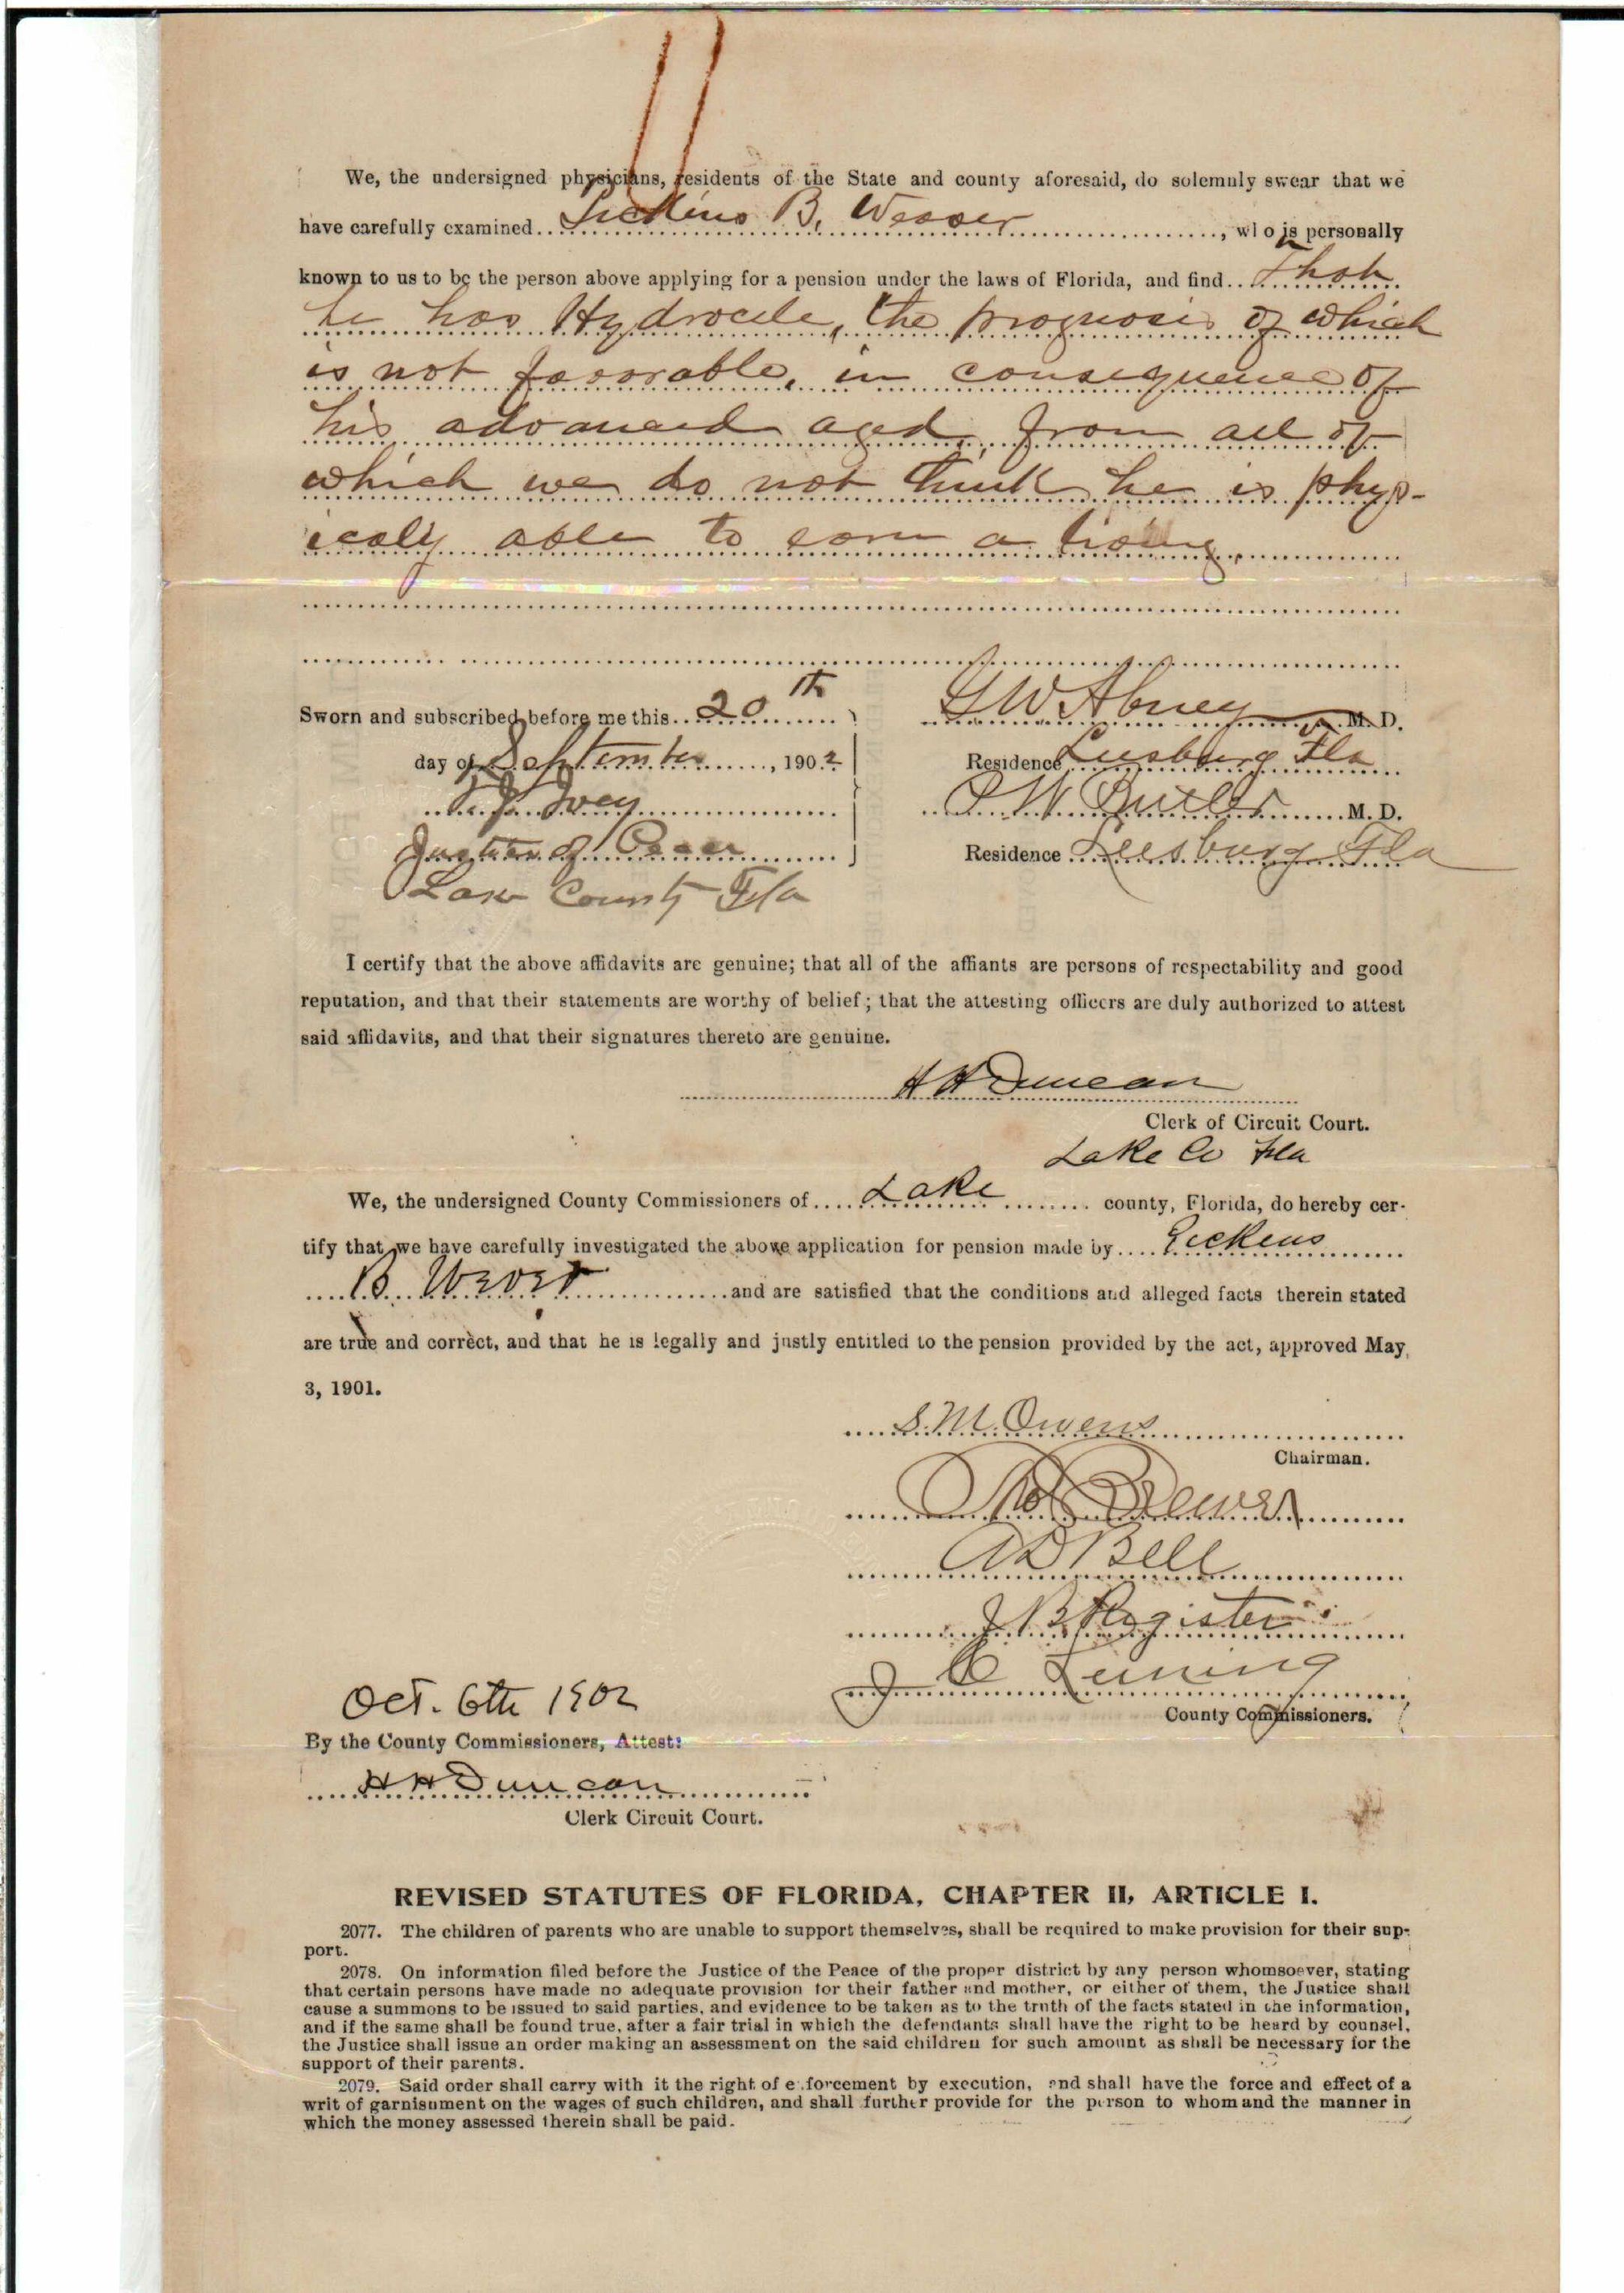 We, the undersigned physicians, residents of the State and county aforesaid, do solemnly swear that we
have carefully examined Lickins B. Weaver, who is personally
known to us to be the person above applying for a pension under the laws of Florida, and find That
he has Hydrocele, the prognosis of which
is not favorable, in consequence of
his advanced aged, from all of
which we do not think he is phys-
icaly able to earn a living.
Sworn and subscribed before me this 20th
day of September, 1902
Ivey
Justice of Peace
Lake County Fla
G W Abney M. D.
Residence Leesburg Fla
W Butler M. D.
Residence Leesburg Fla
I certify that the above affidavits are genuine; that all of the affiants are persons of respectability and good
reputation, and that their statements are worthy of belief; that the attesting officers are duly authorized to attest
said affidavits, and that their signatures thereto are genuine.
H H Duncan
Clerk of Circuit Court.
Lake Co Fla
We, the undersigned County Commissioners of Lake county, Florida, do hereby cer-
tify that we have carefully investigated the above application for pension made by
B. Wever and are satisfied that the conditions and alleged facts therein stated
are true and correct, and that he is legally and justly entitled to the pension provided by the act, approved May
3, 1901.
S. M. Owens
Chairman.
Brewer
A D Bell
J B Register
J C
County Commissioners.
Oct. 6th 1902
By the County Commissioners, Attest:
H H Duncan
Clerk Circuit Court.
REVISED STATUTES OF FLORIDA, CHAPTER II, ARTICLE I.
2077. The children of parents who are unable to support themselves, shall be required to make provision for their sup-
port.
2078. On information filed before the Justice of the Peace of the proper district by any person whomsoever, stating
that certain persons have made no adequate provision for their father and mother, or either of them, the Justice shall
cause a summons to be issued to said parties, and evidence to be taken as to the truth of the facts stated in the information,
and if the same shall be found true, after a fair trial in which the defendants shall have the right to be heard by counsel,
the Justice shall issue an order making an assessment on the said children for such amount as shall be necessary for the
support of their parents.
2079. Said order shall carry with it the right of enforcement by execution, and shall have the force and effect of a
writ of garnishment on the wages of such children, and shall further provide for the person to whom and the manner in
which the money assessed therein shall be paid.